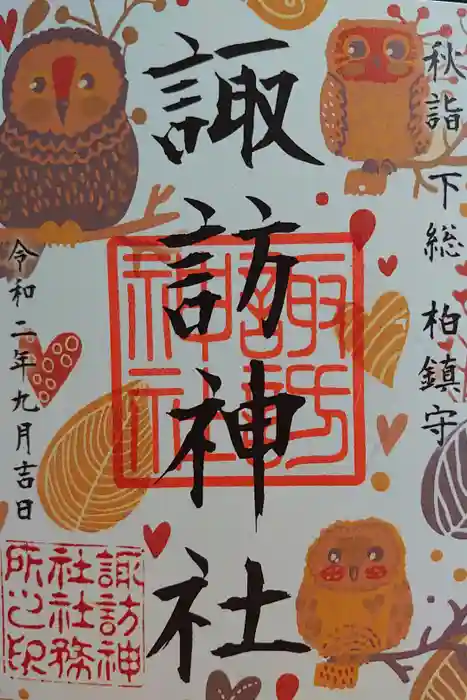 秋詣 下総 柏鎮守
諏訪神社
諏訪神社
令和二年九月吉日
諏訪神
社社務
所之印